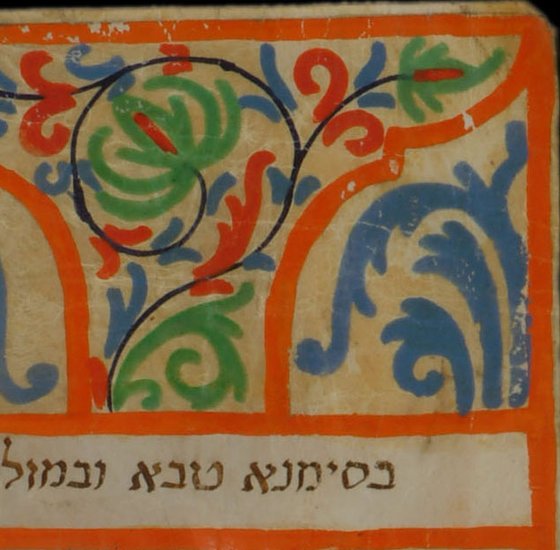 בסימנא טבא ובמזל